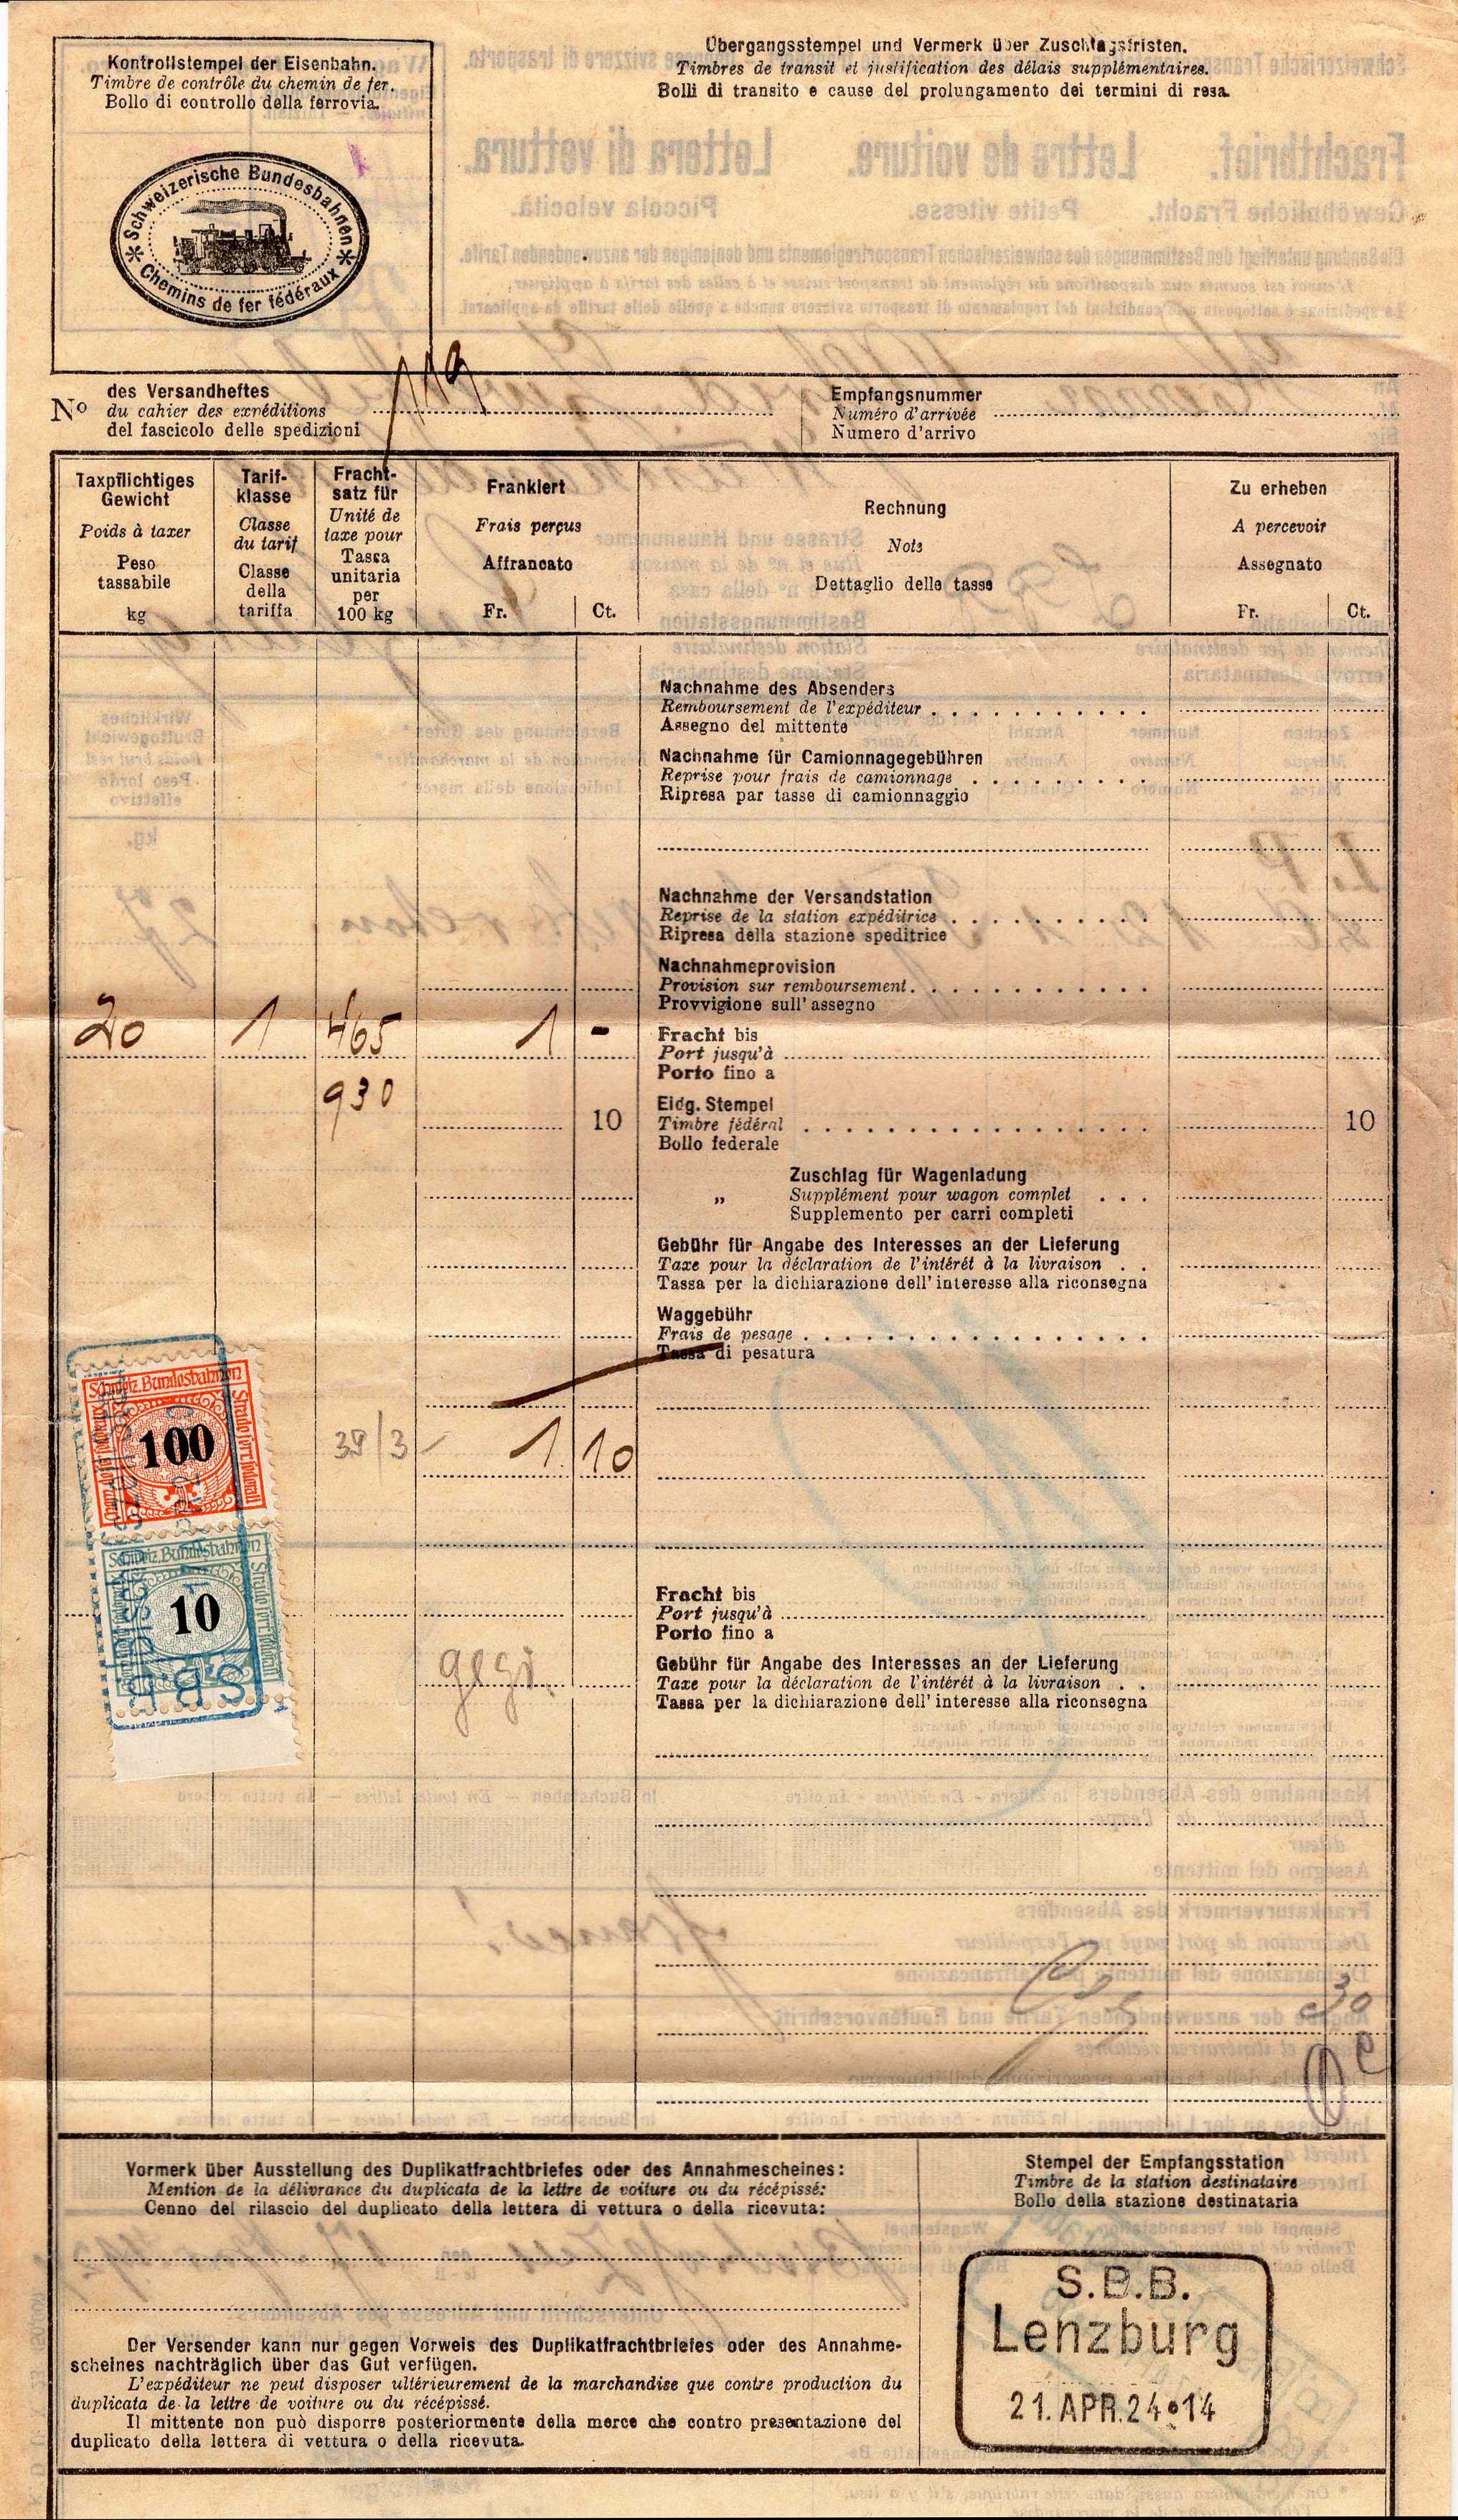 Kontrollstempel der Eisenbahn.
Timbre de contrôle du chemin de fer.
Bollo di controllo della ferrovia.
Schweizerische Bundesbahnen
Chemins de fer fédéraux
Übergangsstempel und Vermerk über Zuschlagsfristen.
Timbres de transit et justification des délais supplémentaires.
Bolli di transito e cause del prolungamento dei termini di resa.
Nº
des Versandheftes
du cahier des expéditions
del fascicolo delle spedizioni
119
Empfangsnummer
Numéro d'arrivée
Numero d'arrivo
Taxpflichtiges
Gewicht
Poids à taxer
Peso
tassabile
kg
Tarif-
klasse
Classe
du tarif
Classe
della
tariffa
Fracht-
satz für
Unité de
taxe pour
Tassa
unitaria
per
100 kg
Frankiert
Frais perçus
Affrancato
Fr. Ct.
Rechnung
Note
Dettaglio delle tasse
Zu erheben
A percevoir
Assegnato
Fr. Ct.
Nachnahme des Absenders
Remboursement de l'expéditeur
Assegno del mittente
Nachnahme für Camionnagegebühren
Reprise pour frais de camionnage
Ripresa par tasse di camionnaggio
Nachnahme der Versandstation
Reprise de la station expéditrice
Ripresa della stazione speditrice
Nachnahmeprovision
Provision sur remboursement
Provvigione sull' assegno
20 1 465 1 -
Fracht bis
Port jusqu'à
Porto fino a
930
10
Eidg. Stempel
Timbre fédéral
Bollo federale
10
Zuschlag für Wagenladung
„ Supplément pour wagon complet
Supplemento per carri completi
Gebühr für Angabe des Interesses an der Lieferung
Taxe pour la déclaration de l'intérêt à la livraison
Tassa per la dichiarazione dell' interesse alla riconsegna
Waggebühr
Frais de pesage
Tassa di pesatura
Schweiz. Bundesbahnen
Strade ferr. federali
100
38/3 1 10
Schweiz. Bundesbahnen
Strade ferr. federali
10
S.B.B.
Fracht bis
Port jusqu'à
Porto fino a
Gebühr für Angabe des Interesses an der Lieferung
Taxe pour la déclaration de l'intérêt à la livraison
Tassa per la dichiarazione dell' interesse alla riconsegna
30
Vormerk über Ausstellung des Duplikatfrachtbriefes oder des Annahmescheines:
Mention de la délivrance du duplicata de la lettre de voiture ou du récépissé:
Cenno del rilascio del duplicato della lettera di vettura o della ricevuta:
Der Versender kann nur gegen Vorweis des Duplikatfrachtbriefes oder des Annahme-
scheines nachträglich über das Gut verfügen.
L'expéditeur ne peut disposer ultérieurement de la marchandise que contre production du
duplicata de la lettre de voiture ou du récépissé.
Il mittente non può disporre posteriormente della merce che contro presentazione del
duplicato della lettera di vettura o della ricevuta.
Stempel der Empfangsstation
Timbre de la station destinataire
Bollo della stazione destinataria
S.B.B.
Lenzburg
21.APR.24•14